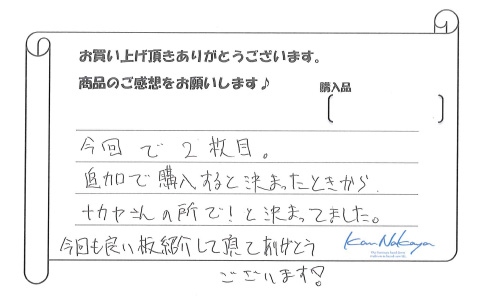 お買い上げ頂きありがとうございます。
商品のご感想をお願いします♪
購入品
今回で2枚目。
追加で購入すると決まったときから
ナカヤさんの所で!と決まってました。
今回も良い板紹介して頂てありがとう
ございます!
Kan Nakaya